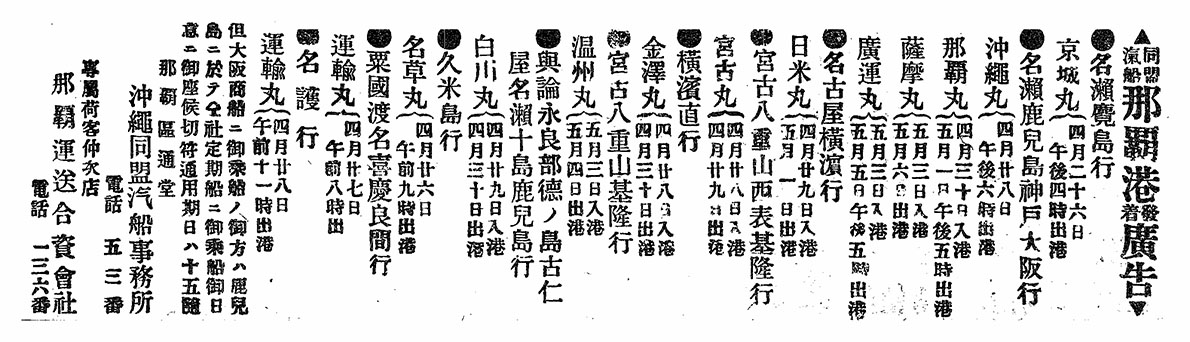 ▲同盟汽船那覇港發着廣告▼
●名瀨鹿兒島行
京城丸 四月二十六日
午後四時出港
●名瀨鹿兒島神戸大阪行
沖繩丸 四月廿八日
午後六時出港
那覇丸 四月三十日入港
五月一日午後五時出港
薩摩丸 五月三日入港
五月六日出港
廣運丸 五月三日入港
五月五日午後五時出港
●名古屋橫濱行
日米丸 四月三十日入港
五月一日出港
●宮古八重山西表基隆行
宮古丸 四月廿九日入港
四月廿九日出港
●橫濱直行
金澤丸 四月廿八日入港
四月三十日出港
●宮古八重山基隆行
温州丸 五月三日入港
五月四日出港
●與論永良部德ノ島古仁
屋名瀨十島鹿兒島行
白川丸 四月廿九日入港
四月三十日出港
●久米島行
名草丸 四月廿六日
午前九時出港
●粟國渡名喜慶良間行
運輸丸 四月廿七日
午前八時出
●名護行
運輸丸 四月廿八日
午前十一時出港
但大阪商船ニ御乘船ノ御方ハ鹿兒
島ニ於テ仝社定期船ニ御乘船御日
意ニ御座候切符通用期日ハ十五隨
那覇區通堂
沖繩同盟汽船事務所
電話 五三番
專屬荷客仲次店
那覇運送合資會社
電話 一三六番